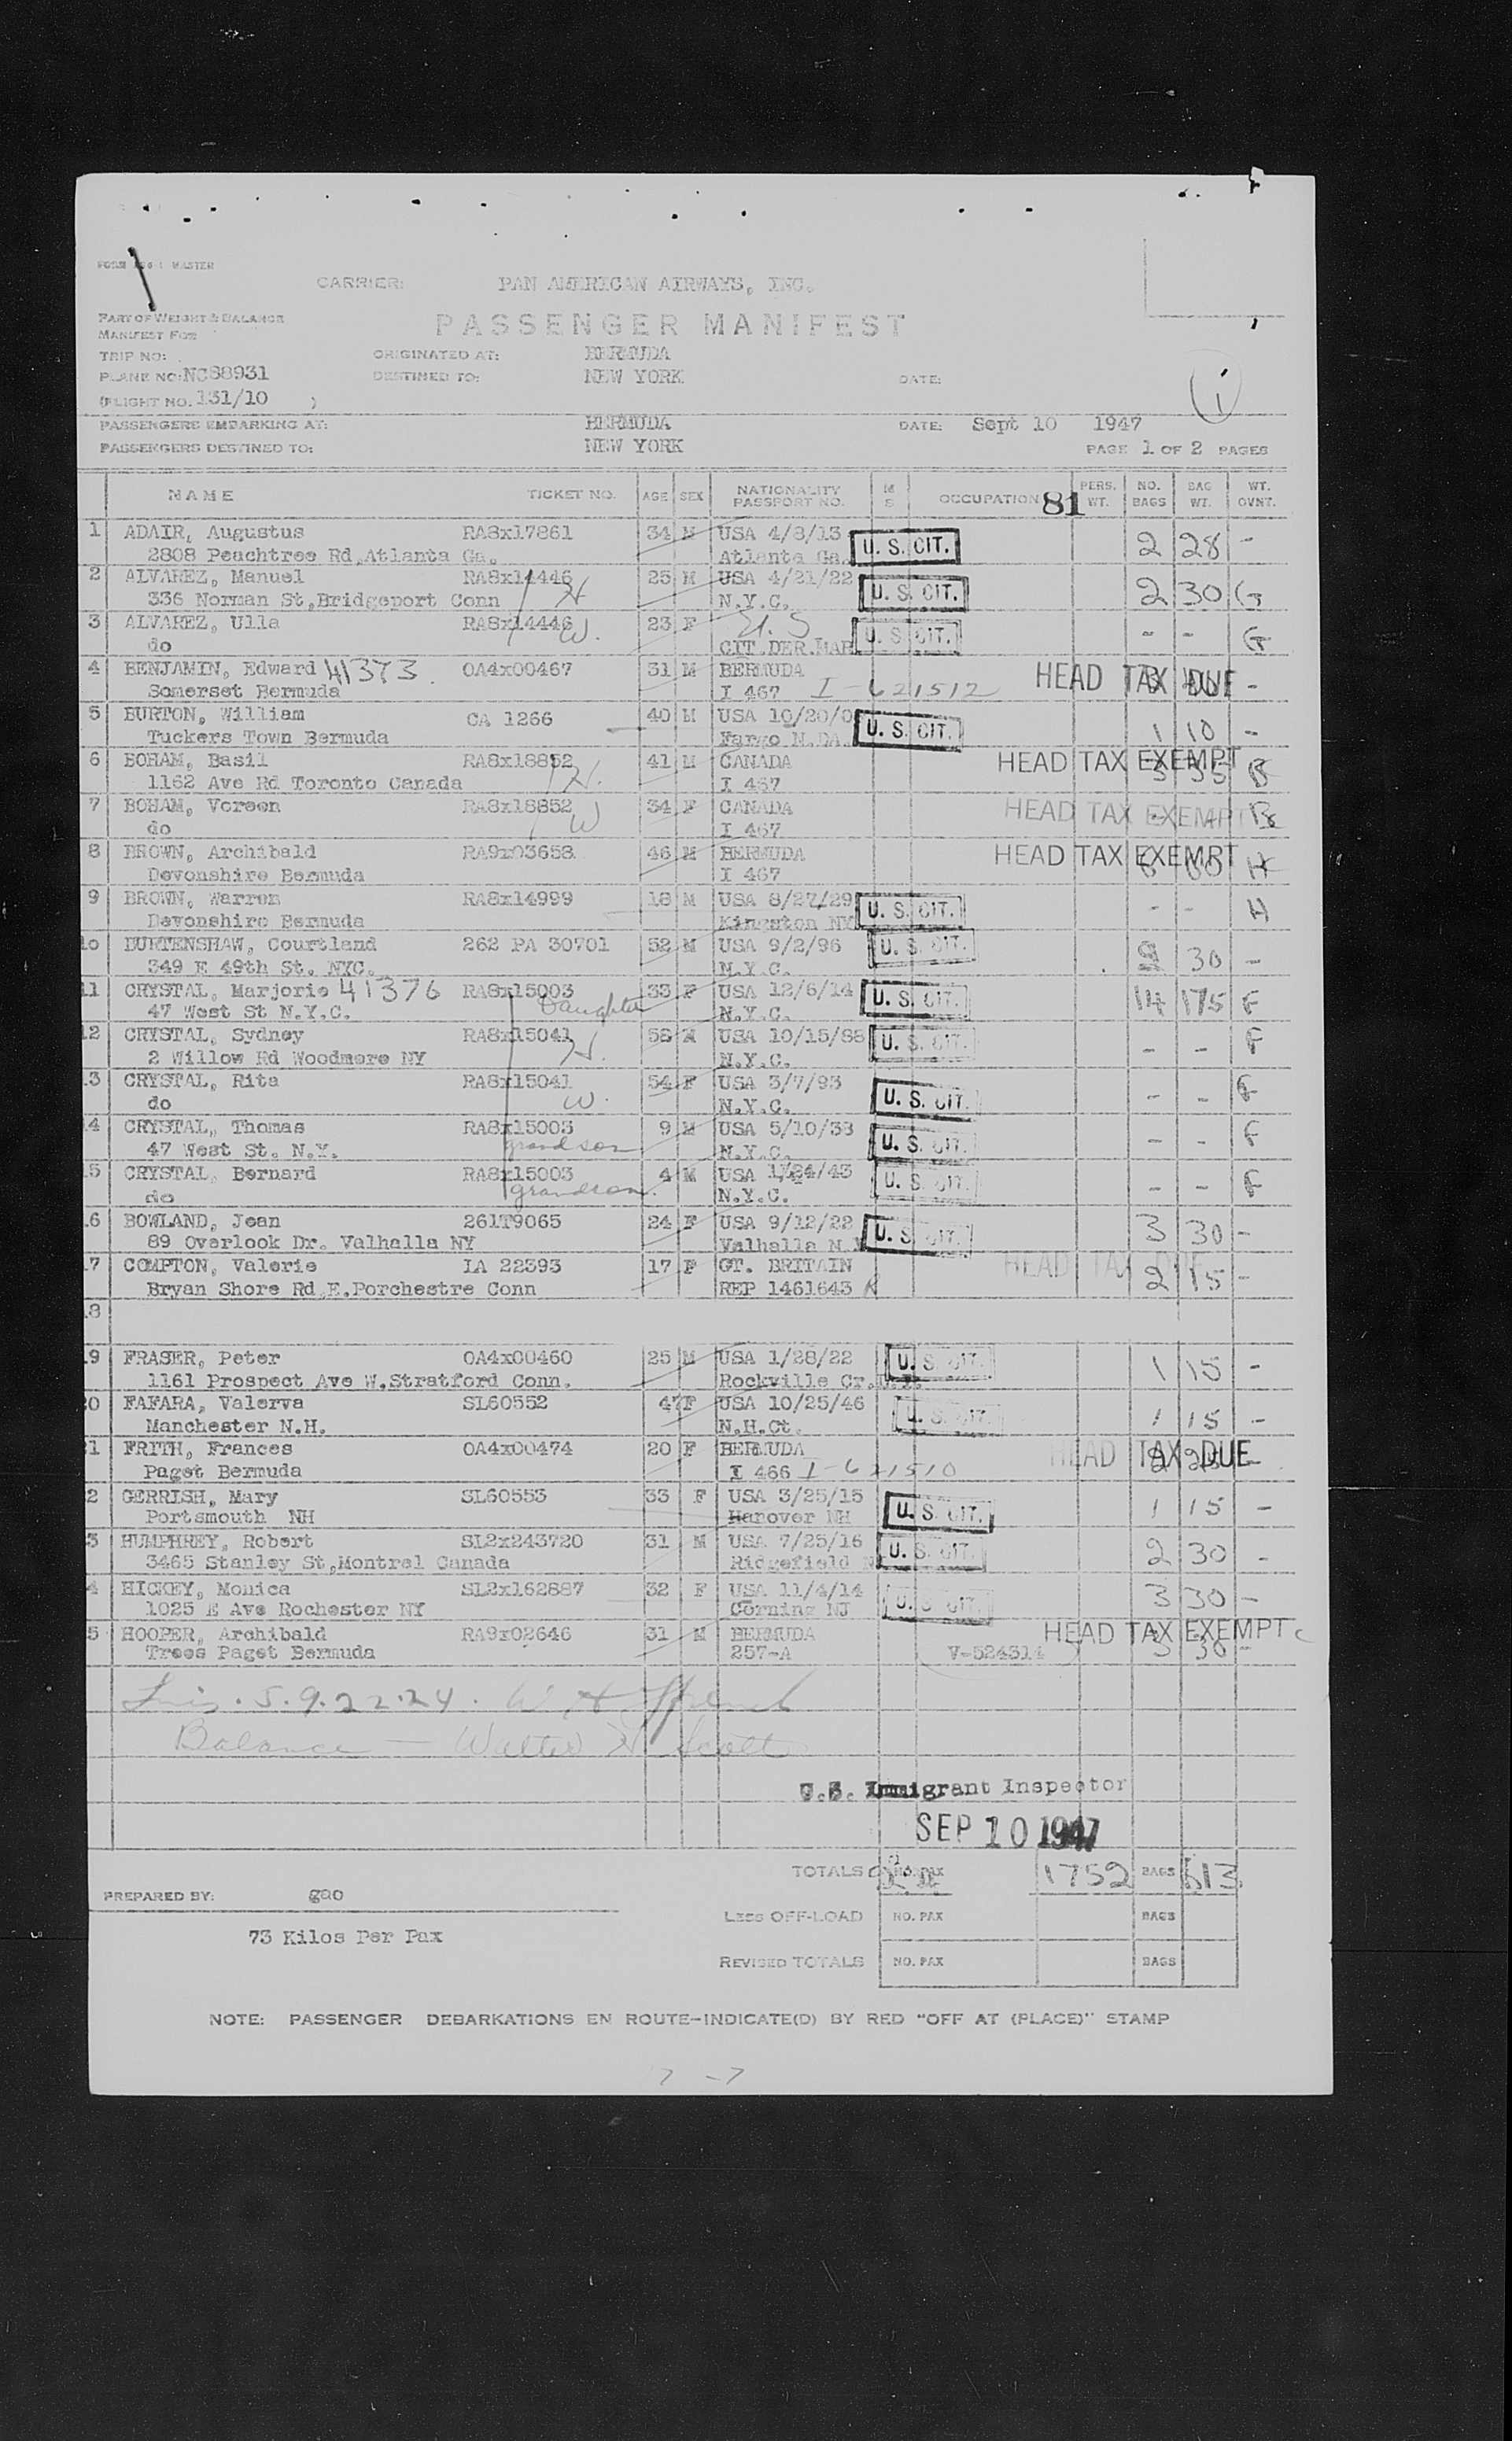 MASTER
CARRIER: PAN AMERICAN AIRWAYS, INC.
PART OF WEIGHT & BALANCE
PASSENGER MANIFEST
MANIFEST FOR
TRIP NO: ORIGINATED AT: BERMUDA
PLANE NO: NC88931 DESTINED TO: NEW YORK DATE: 1
(FLIGHT NO. 131/10 )
PASSENGERS EMBARKING AT: BERMUDA DATE: Sept 10 1947
PASSENGERS DESTINED TO: NEW YORK PAGE 1 OF 2 PAGES
NAME TICKET NO. AGE SEX NATIONALITY PASSPORT NO. M S OCCUPATION 81 PERS. WT. NO. BAGS BAG WT. WT. OVNT.
1 ADAIR, Augustus RA8x17861 34 M USA 4/8/13 U. S. CIT. 2 28 -
2808 Peachtree Rd, Atlanta Ga. Atlanta Ga.
2 ALVAREZ, Manuel RA8x14446 H. 25 M USA 4/21/22 U. S. CIT. 2 30 G
336 Norman St, Bridgeport Conn N.Y.C.
3 ALVAREZ, Ulla RA8x14446 W. 23 F U. S U. S. CIT. - - G
do CIT.DER.MAR
4 BENJAMIN, Edward 41373 OA4x00467 31 M BERMUDA HEAD TAX DUE -
Somerset Bermuda I 467 I-621512
5 BURTON, William CA 1266 40 M USA 10/20/0 U. S. CIT. 1 10 -
Tuckers Town Bermuda Fargo N.DA.
6 BOHAM, Basil RA8x18852 H. 41 M CANADA HEAD TAX EXEMPT B
1162 Ave Rd Toronto Canada I 467
7 BOHAM, Voreen RA8x18852 W 34 F CANADA HEAD TAX EXEMPT B
do I 467
8 BROWN, Archibald RA9x03658 46 M BERMUDA HEAD TAX EXEMPT H
Devonshire Bermuda I 467
9 BROWN, Warren RA8x14999 18 M USA 8/27/29 U. S. CIT. - - H
Devonshire Bermuda Kingston NY
10 BURTENSHAW, Courtland 262 PA 30701 52 M USA 9/2/96 U. S. CIT. 30 -
349 E 49th St. NYC. N.Y.C.
11 CRYSTAL, Marjorie 41376 RA8x15003 Daughter 33 F USA 12/6/14 U. S. CIT. 14 175 F
47 West St N.Y.C. N.Y.C.
12 CRYSTAL, Sydney RA8x15041 H. 58 M USA 10/15/88 U. S. CIT. - - F
2 Willow Rd Woodmere NY N.Y.C.
13 CRYSTAL, Rita RA8x15041 W. 54 F USA 3/7/93 U. S. CIT. - - F
do N.Y.C.
14 CRYSTAL, Thomas RA8x15003 grandson 9 M USA 5/10/38 U. S. CIT. - - F
47 West St. N.Y. N.Y.C.
15 CRYSTAL, Bernard RA8x15003 grandson. 4 M USA U. S. CIT. - - F
do N.Y.C.
16 BOWLAND, Jean 261T9065 24 F USA 9/12/22 U. S. CIT. 3 30 -
89 Overlook Dr. Valhalla NY Valhalla N.Y
17 COMPTON, Valerie IA 22393 17 F GT. BRITAIN HEAD TAX DUE 2 15 -
Bryan Shore Rd, E.Porchestre Conn REP 1461643 R
18
19 FRASER, Peter OA4x00460 25 M USA 1/28/22 U. S. CIT. 1 15 -
1161 Prospect Ave W.Stratford Conn. Rockville Cr.
20 FAFARA, Valerva SL60552 47 F USA 10/25/46 U. S. CIT. 1 15 -
Manchester N.H. N.H.Ct.
21 FRITH, Frances OA4x00474 20 F BERMUDA HEAD TAX DUE -
Paget Bermuda I 466 I-621510
22 GERRISH, Mary SL60553 33 F USA 3/25/15 U. S. CIT. 1 15 -
Portsmouth NH Hanover NH
23 HUMPHREY, Robert SL2x243720 31 M USA 7/25/16 U. S. CIT. 2 30 -
3465 Stanley St, Montrel Canada Ridgefield N
24 HICKEY, Monica SL2x162887 32 F USA 11/4/14 U. S. CIT. 3 30 -
1025 E Ave Rochester NY Corning NJ
25 HOOPER, Archibald RA9x02646 31 M BERMUDA HEAD TAX EXEMPT
Trees Paget Bermuda 257-A V-524314 3 30 -
5.9.22.24. W
Balance - Walter H Scott
U.S. Immigrant Inspector
SEP 10 1947
TOTALS NO. PAX 1752 BAGS 613
PREPARED BY: gao
LESS OFF-LOAD NO. PAX BAGS
73 Kilos Per Pax
REVISED TOTALS NO. PAX BAGS
NOTE: PASSENGER DEBARKATIONS EN ROUTE-INDICATE(D) BY RED "OFF AT (PLACE)" STAMP